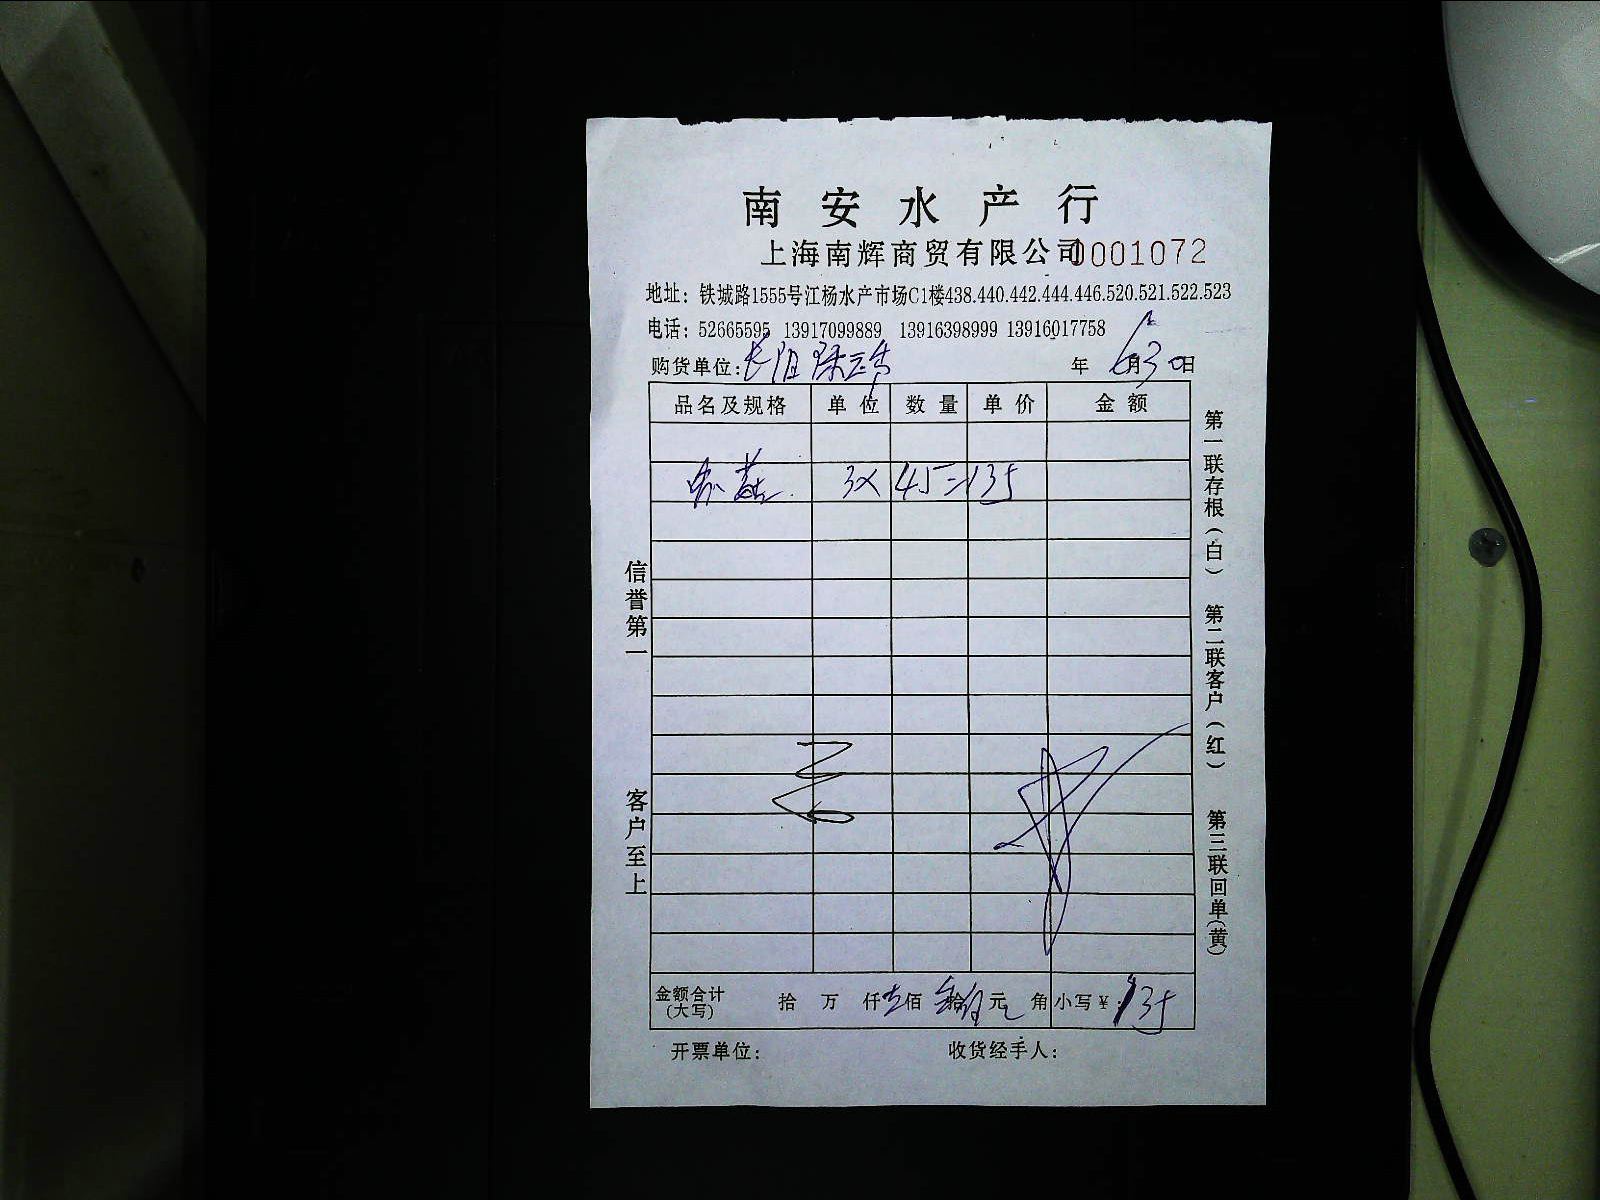 南安水产行
上海南辉商贸有限公司 0001072
地址：铁城路1555号江杨水产市场C1楼438.440.442.444.446.520.521.522.523
电话：52665595 13917099889 13916398999 13916017758
购货单位：长阳 年 6月30日
品名及规格 单位 数量 单价 金额
3× 45=135
信誉第一
客户至上
第一联存根（白）
第二联客户（红）
第三联回单（黄）
金额合计（大写） 拾 万 仟 壹佰 叁拾伍元 角 小写￥：135
开票单位： 收货经手人：